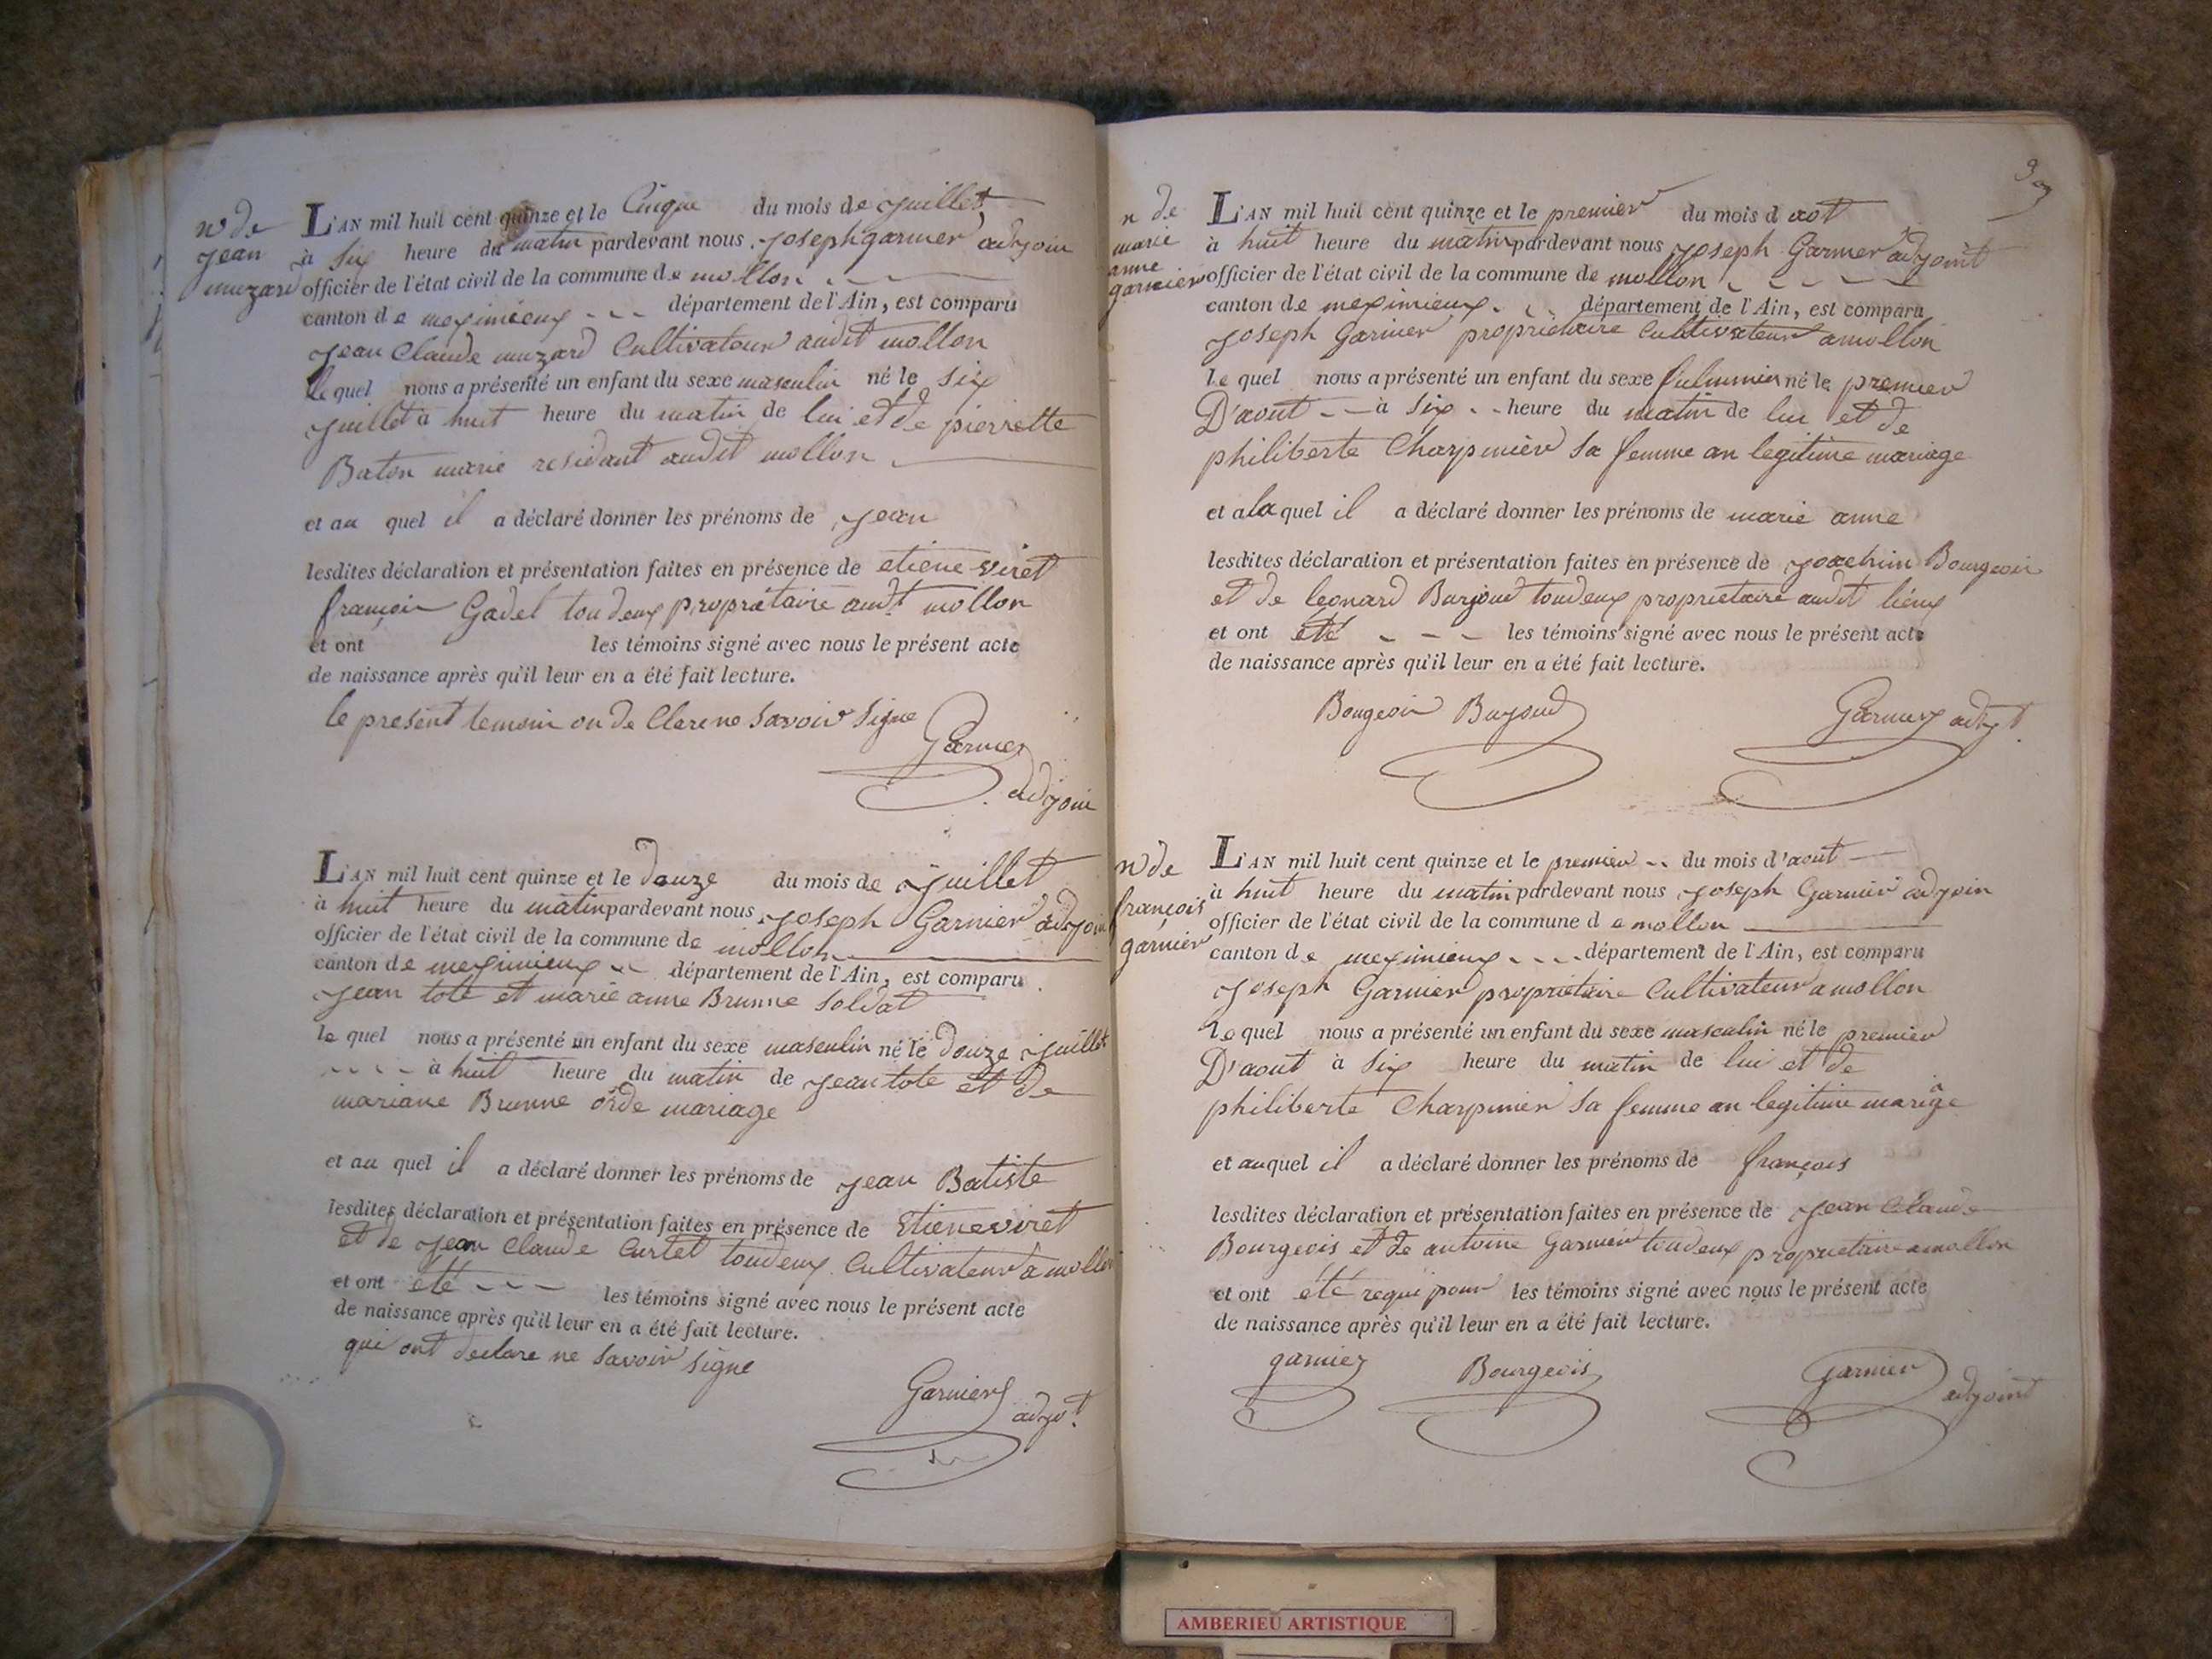 n de
jean
muzard
L'AN mil huit cent quinze et le Cinque du mois de juillet
à six heure du matin pardevant nous joseph garnier adjoin
officier de l'état civil de la commune de mollon
canton de meximieux département de l'Ain, est comparu
jean Claude muzard Cultivateur audit mollon
le quel nous a présenté un enfant du sexe masculin né le six
juillet à huit heure du matin de lui et de pierrette
Baton marie residant audit mollon
et au quel il a déclaré donner les prénoms de jean
lesdites déclaration et présentation faites en présence de etiene viret
françois Gadel toudeux propriétaire audt mollon
et ont les témoins signé avec nous le présent acte
de naissance après qu'il leur en a été fait lecture.
le present temoin on de Clere ne Savoir Signe
Garnier
adjoin
L'AN mil huit cent quinze et le douze du mois de juillet
à huit heure du matin pardevant nous joseph Garnier adjoin
officier de l'état civil de la commune de mollon
canton de meximieux département de l'Ain, est comparu
jean tote et marie anne Brunne Soldat
le quel nous a présenté un enfant du sexe masculin né le douze juillet
à huit heure du matin de jean tote et de
mariane Brunne orde mariage
et au quel il a déclaré donner les prénoms de jean Batiste
lesdites déclaration et présentation faites en présence de Etiene viret
et de jean Claude Curtet toudeux Cultivateur a mollon
et ont été les témoins signé avec nous le présent acte
de naissance après qu'il leur en a été fait lecture.
qui ont declare ne Savoir Signe
Garnier
adjot
3
n de
marie
anne
garnier
L'AN mil huit cent quinze et le premier du mois d aot
à huit heure du matin pardevant nous joseph Garnier adjoint
officier de l'état civil de la commune de mollon
canton de meximieux département de l'Ain, est comparu
joseph Garnier propriétaire Cultivateur a mollon
le quel nous a présenté un enfant du sexe né le premier
D'aout à six heure du matin de lui et de
philiberte Charpinier Sa femme an legitime mariage
et a la quel il a déclaré donner les prénoms de marie anne
lesdites déclaration et présentation faites en présence de joachim Bourgeois
et de leonard Burjoud toudeux proprietaire audit lieux
et ont été les témoins signé avec nous le présent acte
de naissance après qu'il leur en a été fait lecture.
Bougeoir Bujoud Garnier adjt
n de
françois
garnier
L'AN mil huit cent quinze et le premier du mois d'aout
à huit heure du matin pardevant nous joseph Garnier adjoin
officier de l'état civil de la commune de mollon
canton de meximieux département de l'Ain, est comparu
joseph Garnier propriétaire Cultivateur a mollon
le quel nous a présenté un enfant du sexe masculin né le premier
D'aout à six heure du matin de lui et de
philiberte Charpinier Sa femme an legitime marige
et au quel il a déclaré donner les prénoms de françois
lesdites déclaration et présentation faites en présence de jean Claude
Bourgeois et de antoine Garnier toudeux proprietaire a mollon
et ont été requi pour les témoins signé avec nous le présent acte
de naissance après qu'il leur en a été fait lecture.
garnier Bourgeois garnier
adjoint
AMBERIEU ARTISTIQUE